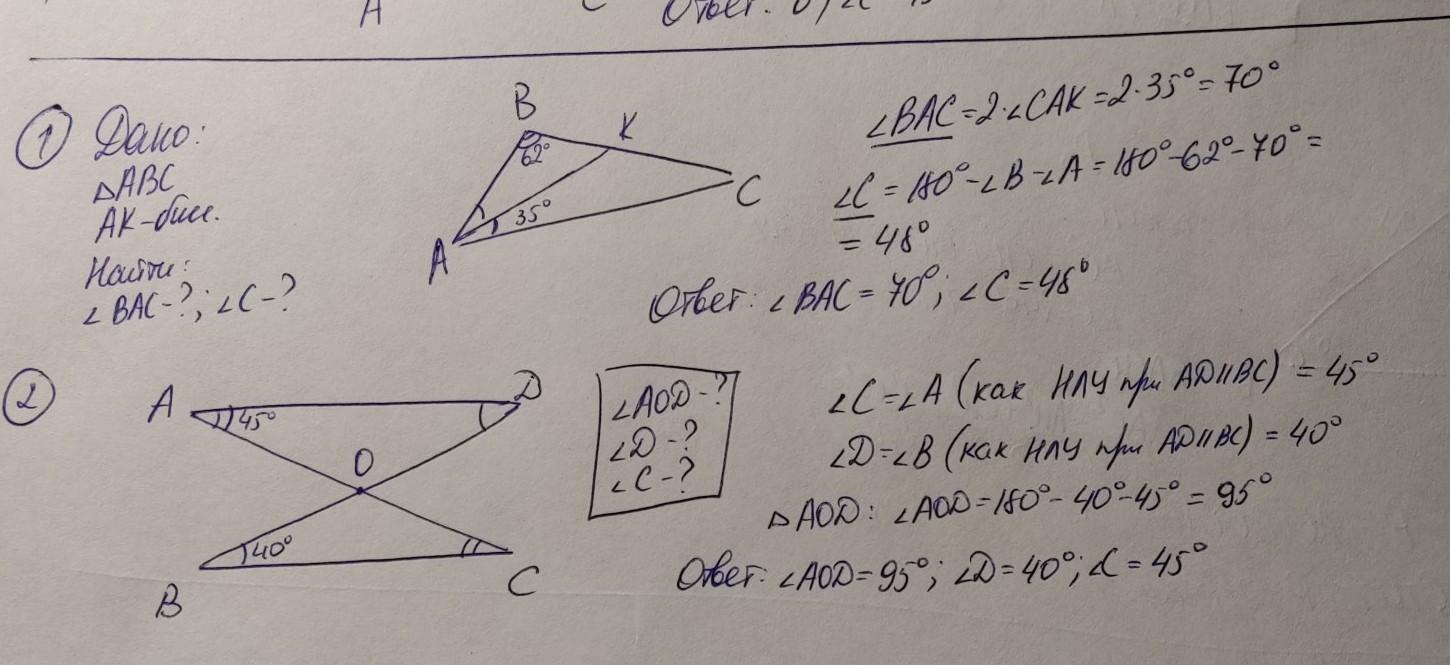 A
Ответ:
① Дано:
△ABC
AK-бисс.
Найти:
∠BAC-?; ∠C-?
B
K
62°
35°
C
A
∠BAC=2·∠CAK=2·35°=70°
∠C=180°-∠B-∠A=180°-62°-70°=
=48°
Ответ: ∠BAC=70°; ∠C=48°
②
A
D
45°
O
40°
B
C
∠AOD-?
∠D-?
∠C-?
∠C=∠A (как НЛУ при AD||BC) = 45°
∠D=∠B (как НЛУ при AD||BC) = 40°
△AOD: ∠AOD=180°-40°-45°=95°
Ответ: ∠AOD=95°; ∠D=40°; ∠C=45°